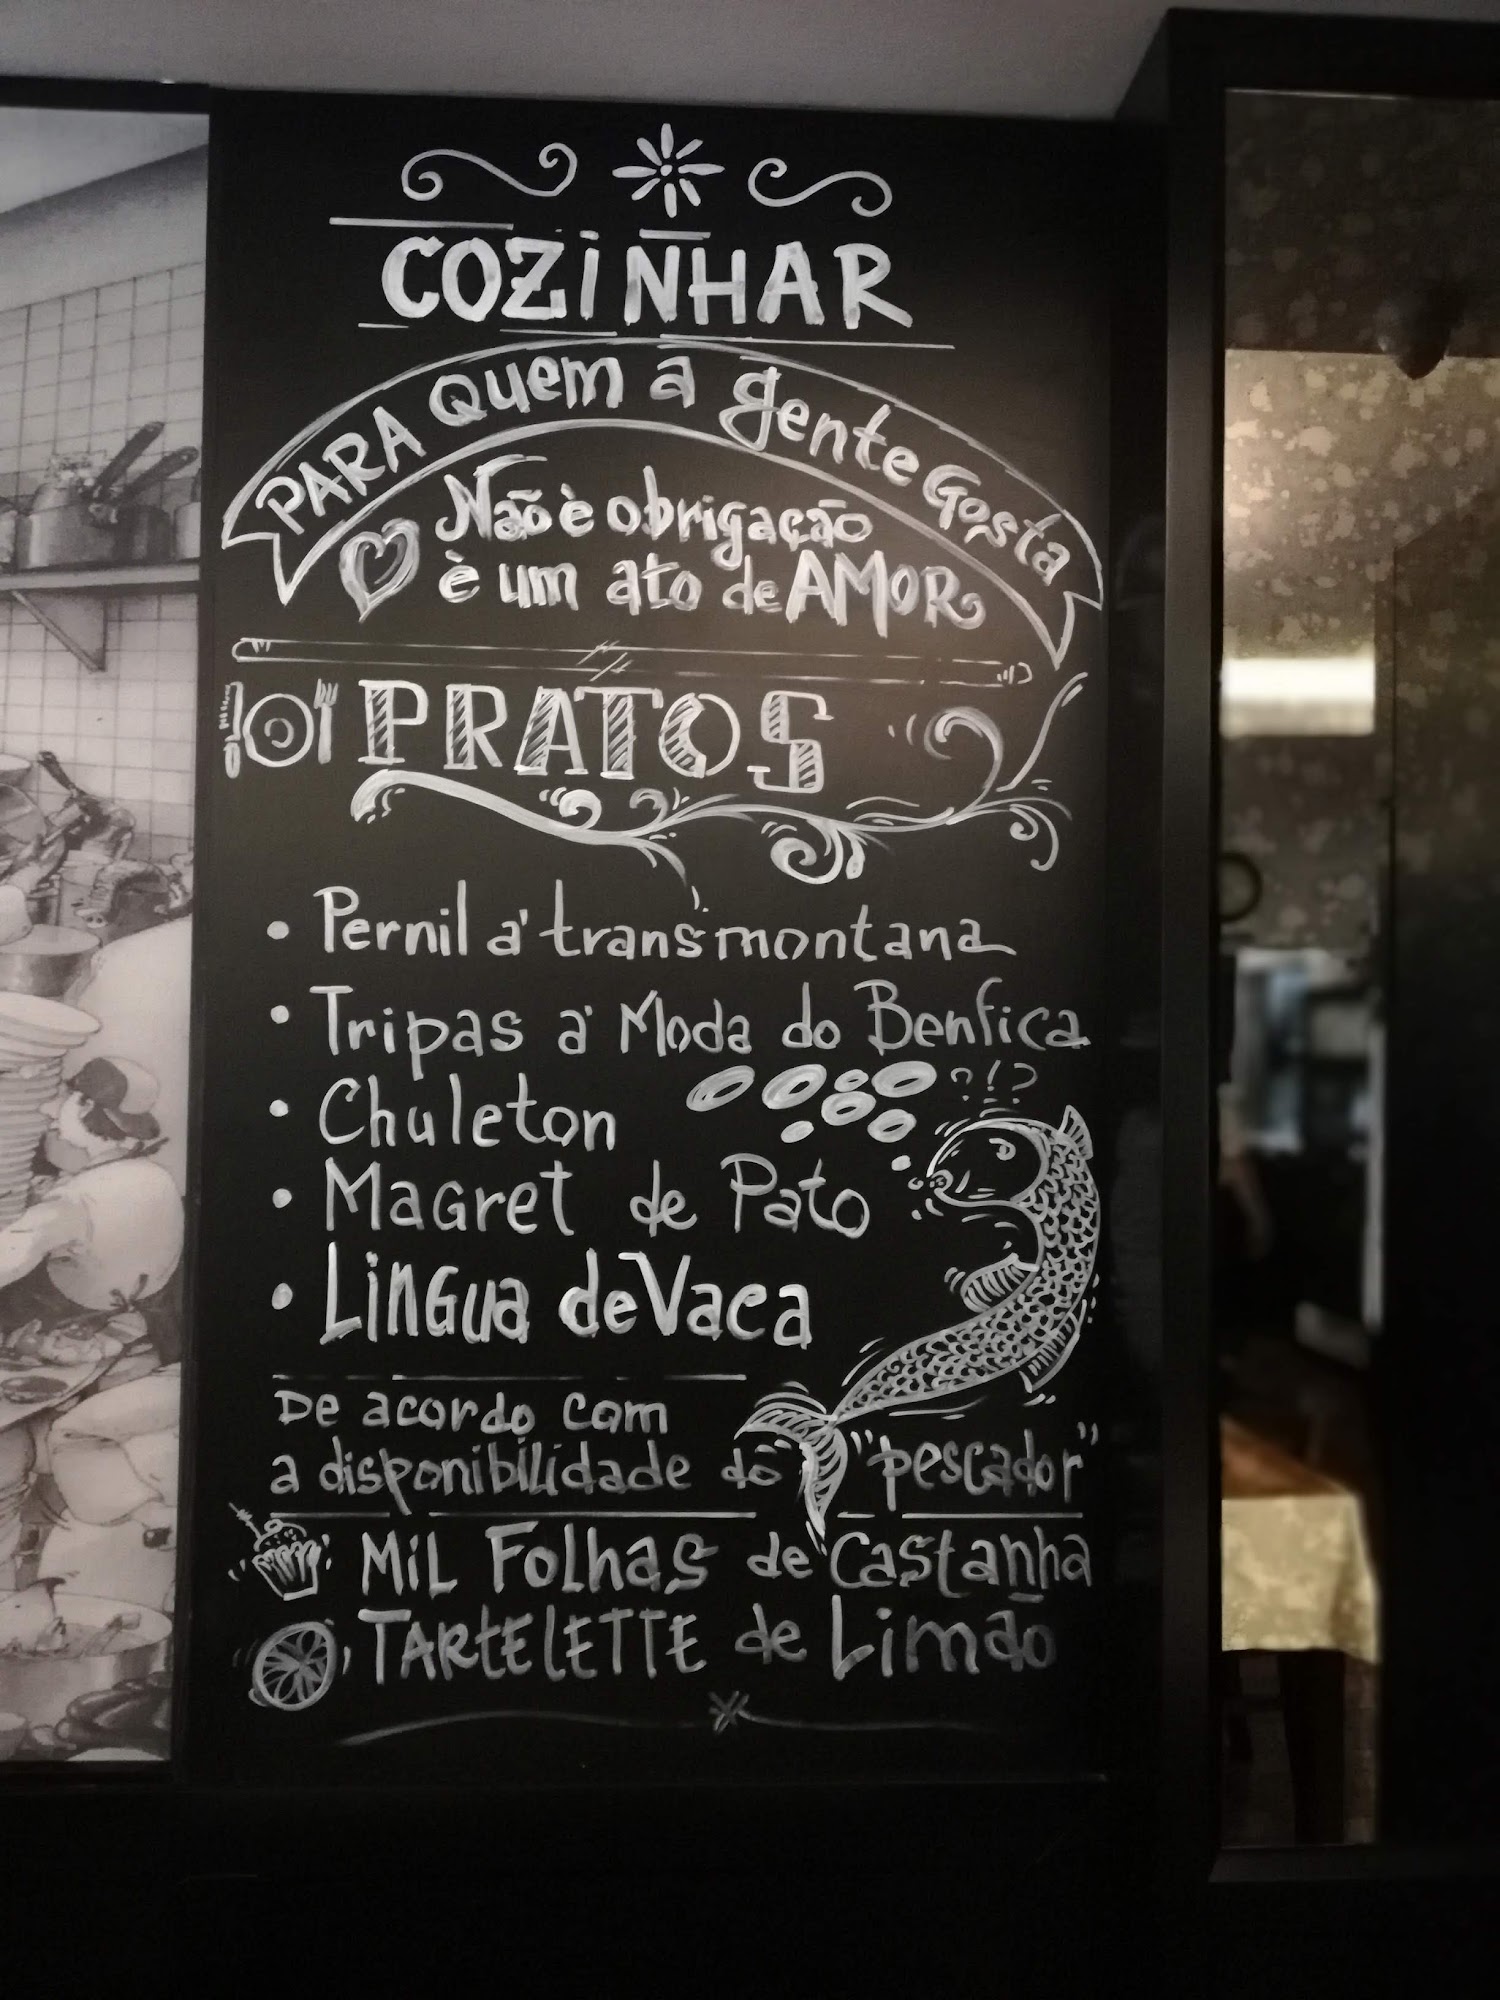 COZiNHAR
PARA Quem A gente Gosta
Não è obrigação
è um ato de AMOR
PRATOS
• Pernil á transmontana
• Tripas á Moda do Benfica
• Chuleton
?!?
• Magret de Pato
• Lingua de Vaca
De acordo com
a disponibilidade do "pescador"
MiL Folhas de Castanha
TARTELETTE de Limão